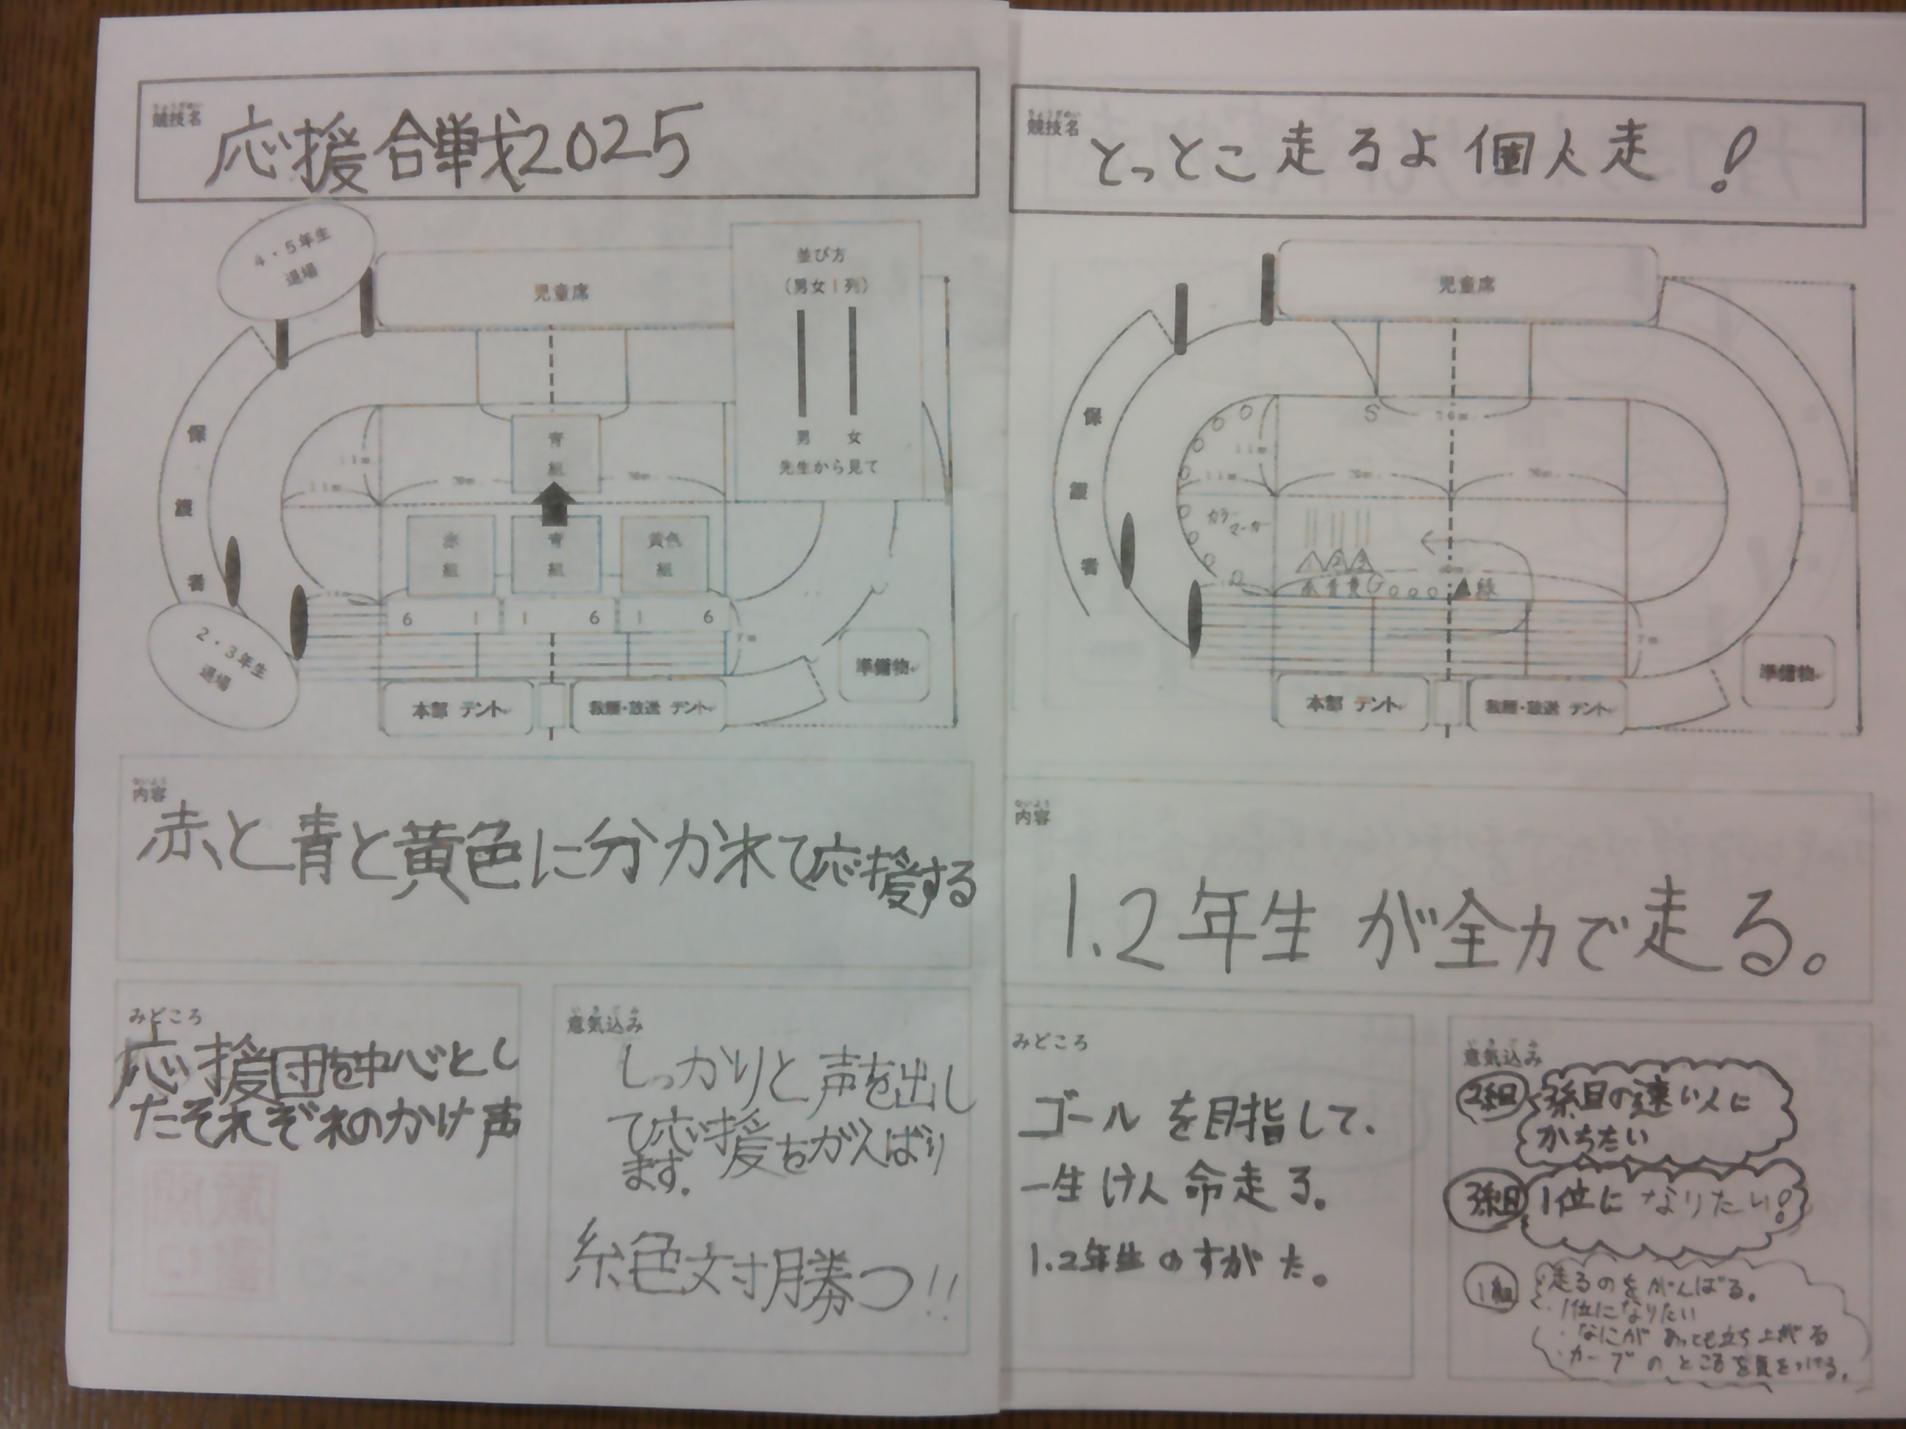 競技名
きょうぎめい
応援合戦2025
4・5年生
退場
児童席
並び方
(男女1列)
男 女
先生から見て
保
護
者
青
組
11m
11m
20m
20m
赤
組
青
組
黄色
組
6 1 1 6 1 6
7m
2・3年生
退場
準備物
本部 テント
救護・放送 テント
ないよう
内容
赤と青と黄色に分かれて応援する
みどころ
応援団を中心とし
たそれぞれのかけ声
意気込み
しっかりと声を出し
て応援をがんばり
ます。
絶対勝つ!!
きょうぎめい
競技名
とっとこ走るよ個人走!
児童席
保
護
者
S
11m
11m
20m
20m
カラー
マーカー
1 2 3
赤 青 黄
緑
7m
準備物
本部 テント
救護・放送 テント
ないよう
内容
1.2年生が全力で走る。
みどころ
ゴールを目指して、
一生けん命走る。
1.2年生のすがた。
意気込み
2組目 3組目の速い人に
かちたい
3組目 1位になりたい!
1組 走るのをがんばる。
・1位になりたい
・なにがあっても立ち上がる
・カーブのところを気をつける。